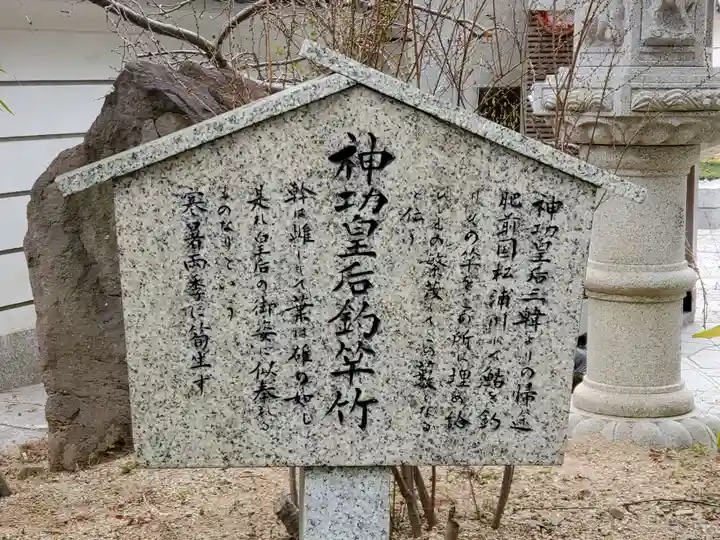 神功皇后三韓よりの帰途
肥前国松浦川にて鮎を釣
りしもの竿をこの所に埋め給
ひしもの繁茂してこの藪となる
と伝う
神功皇后釣竿竹
幹は雌にして葉は雄の如し
是れ皇后の御姿に似奉れる
ものなりという
寒暑両季に筍生ず